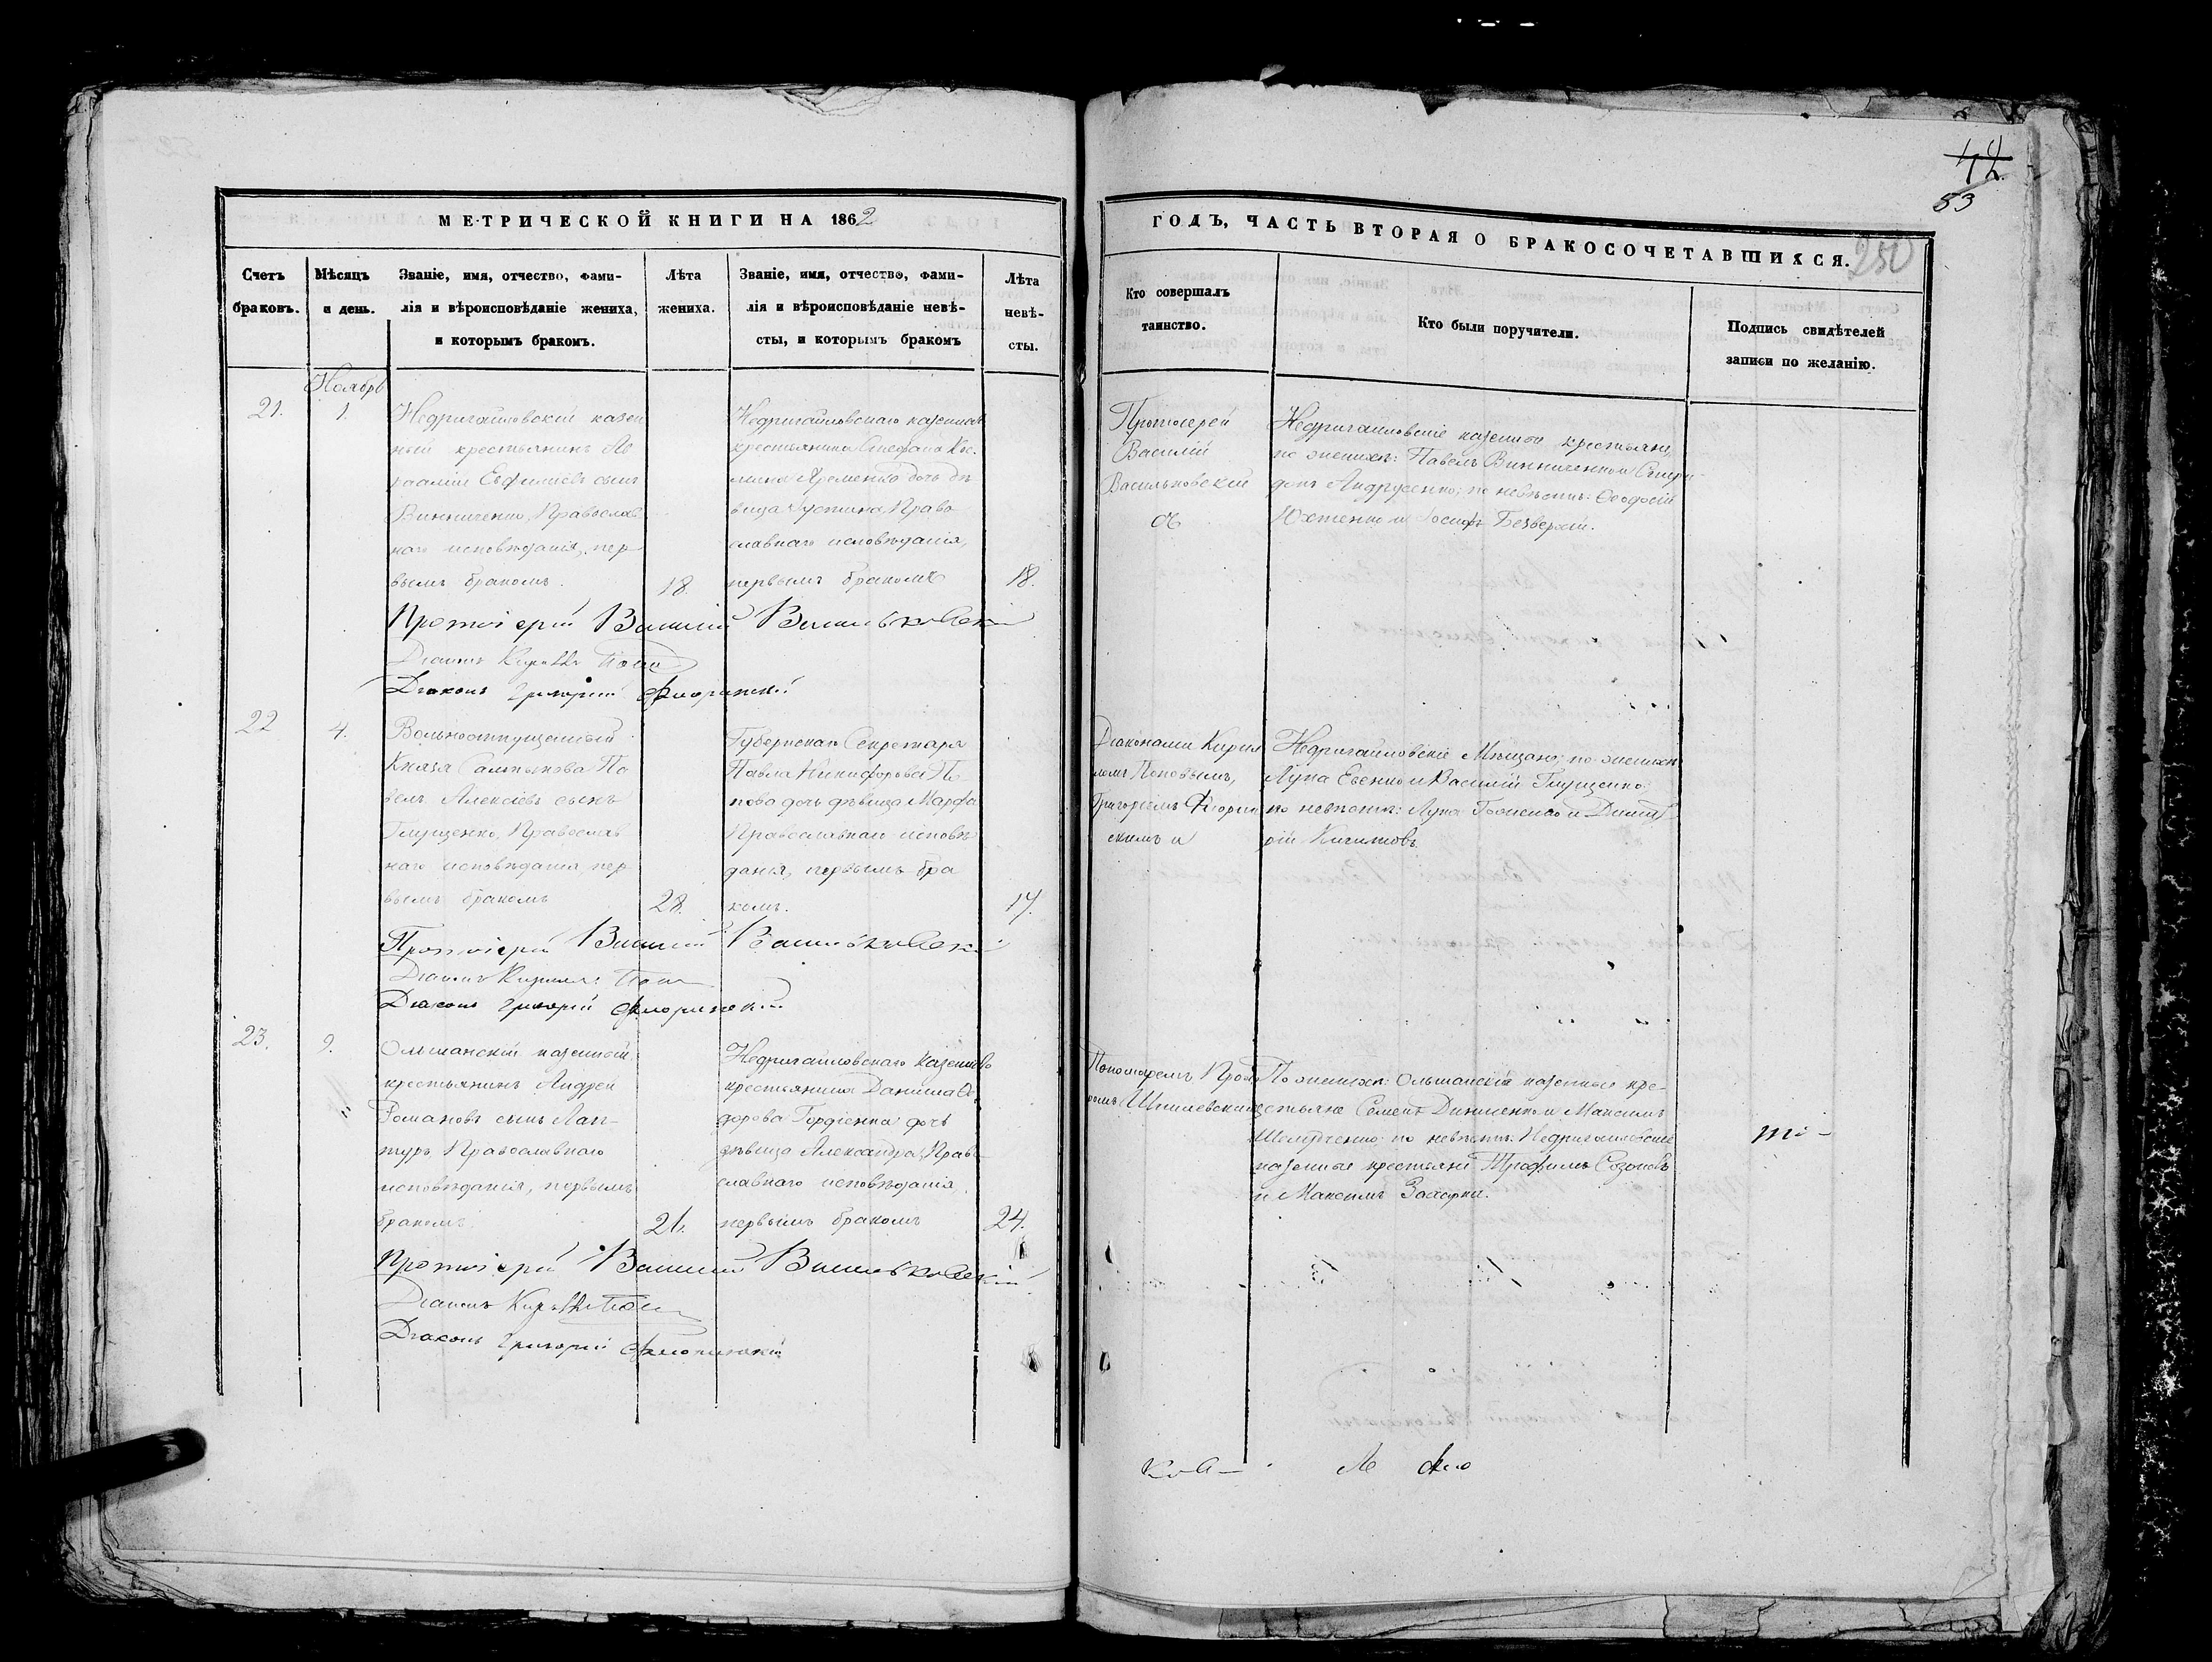 42
53
250
МЕТРИЧЕСКОЙ КНИГИ НА 1862
ГОДЪ, ЧАСТЬ ВТОРАЯ О БРАКОСОЧЕТАВШИХСЯ.
Счетъ браковъ.
Мѣсяцъ и день.
Званіе, имя, отчество, фами-
лія и вѣроисповѣданіе жениха,
и которымъ бракомъ.
Лѣта жениха.
Званіе, имя, отчество, фами-
лія и вѣроисповѣданіе невѣ-
сты, и которымъ бракомъ
Лѣта невѣ-
сты.
Кто совершалъ
таинство.
Кто были поручители.
Подпись свидѣтелей
записи по желанію.
Ноябрь
21.
1.
Недригайловскій казен
ный крестьянинъ
Евфиміевъ сынъ
Винниченко, Православ
наго исповѣданія, пер
вымъ бракомъ.
18.
Недригайловскаго казеннаго
крестьянина Стефана
Яременка дочь дѣ
вица Устина, Право
славнаго исповѣданія,
первымъ бракомъ
18.
Протоіерей
Василій
Васильковскій
съ
Недригайловскіе казенные крестьяне,
по женихѣ: Павелъ Винниченко и Спири
донъ Андрусенко; по невѣстѣ: Ѳеодосій
Юхтенко и Іосифъ Безверхій.
Протоіерей Василій Васильковскій
Діаконъ Кириллъ Поповъ
Діаконъ Григорій Флоринскій
22
4.
Вольноотпущенный
Князя Салтыкова Па
велъ Алексіевъ сынъ
Глущенко, Православ
наго исповѣданія, пер
вымъ бракомъ
28.
Губернскаго Секретаря
Павла Никифорова По
пова дочь дѣвица Марфа
Православнаго исповѣ
данія, первымъ бра
комъ.
17.
Діаконами Кирил
ломъ Поповымъ,
Григоріемъ Флорин
скимъ и
Недригайловскіе Мѣщане, по женихѣ
Лука Евенко и Василій Глущенко;
по невѣстѣ: Лука и Димит
рій
Протоіерей Василій Васильковскій
Діаконъ Кириллъ Поповъ
Діаконъ Григорій Флоринскій
23.
9.
Ольшанскій казенный
крестьянинъ Андрей
Романовъ сынъ Лап-
туръ Православнаго
исповѣданія, первымъ
бракомъ.
21.
Недригайловскаго казеннаго
крестьянина Даніила Ѳе
дорова Гордіенка дочь
дѣвица Александра, Право
славнаго исповѣданія,
первымъ бракомъ
24.
Пономаремъ
Шпилевскимъ
По женихѣ: Ольшанскіе казенные кре-
стьяне Семенъ и Максимъ
по невѣстѣ: Недригайловскіе
казенные крестьяне Трофимъ Созоновъ
и Максимъ
Протоіерей Василій Васильковскій
Діаконъ Кириллъ Поповъ
Діаконъ Григорій Флоринскій